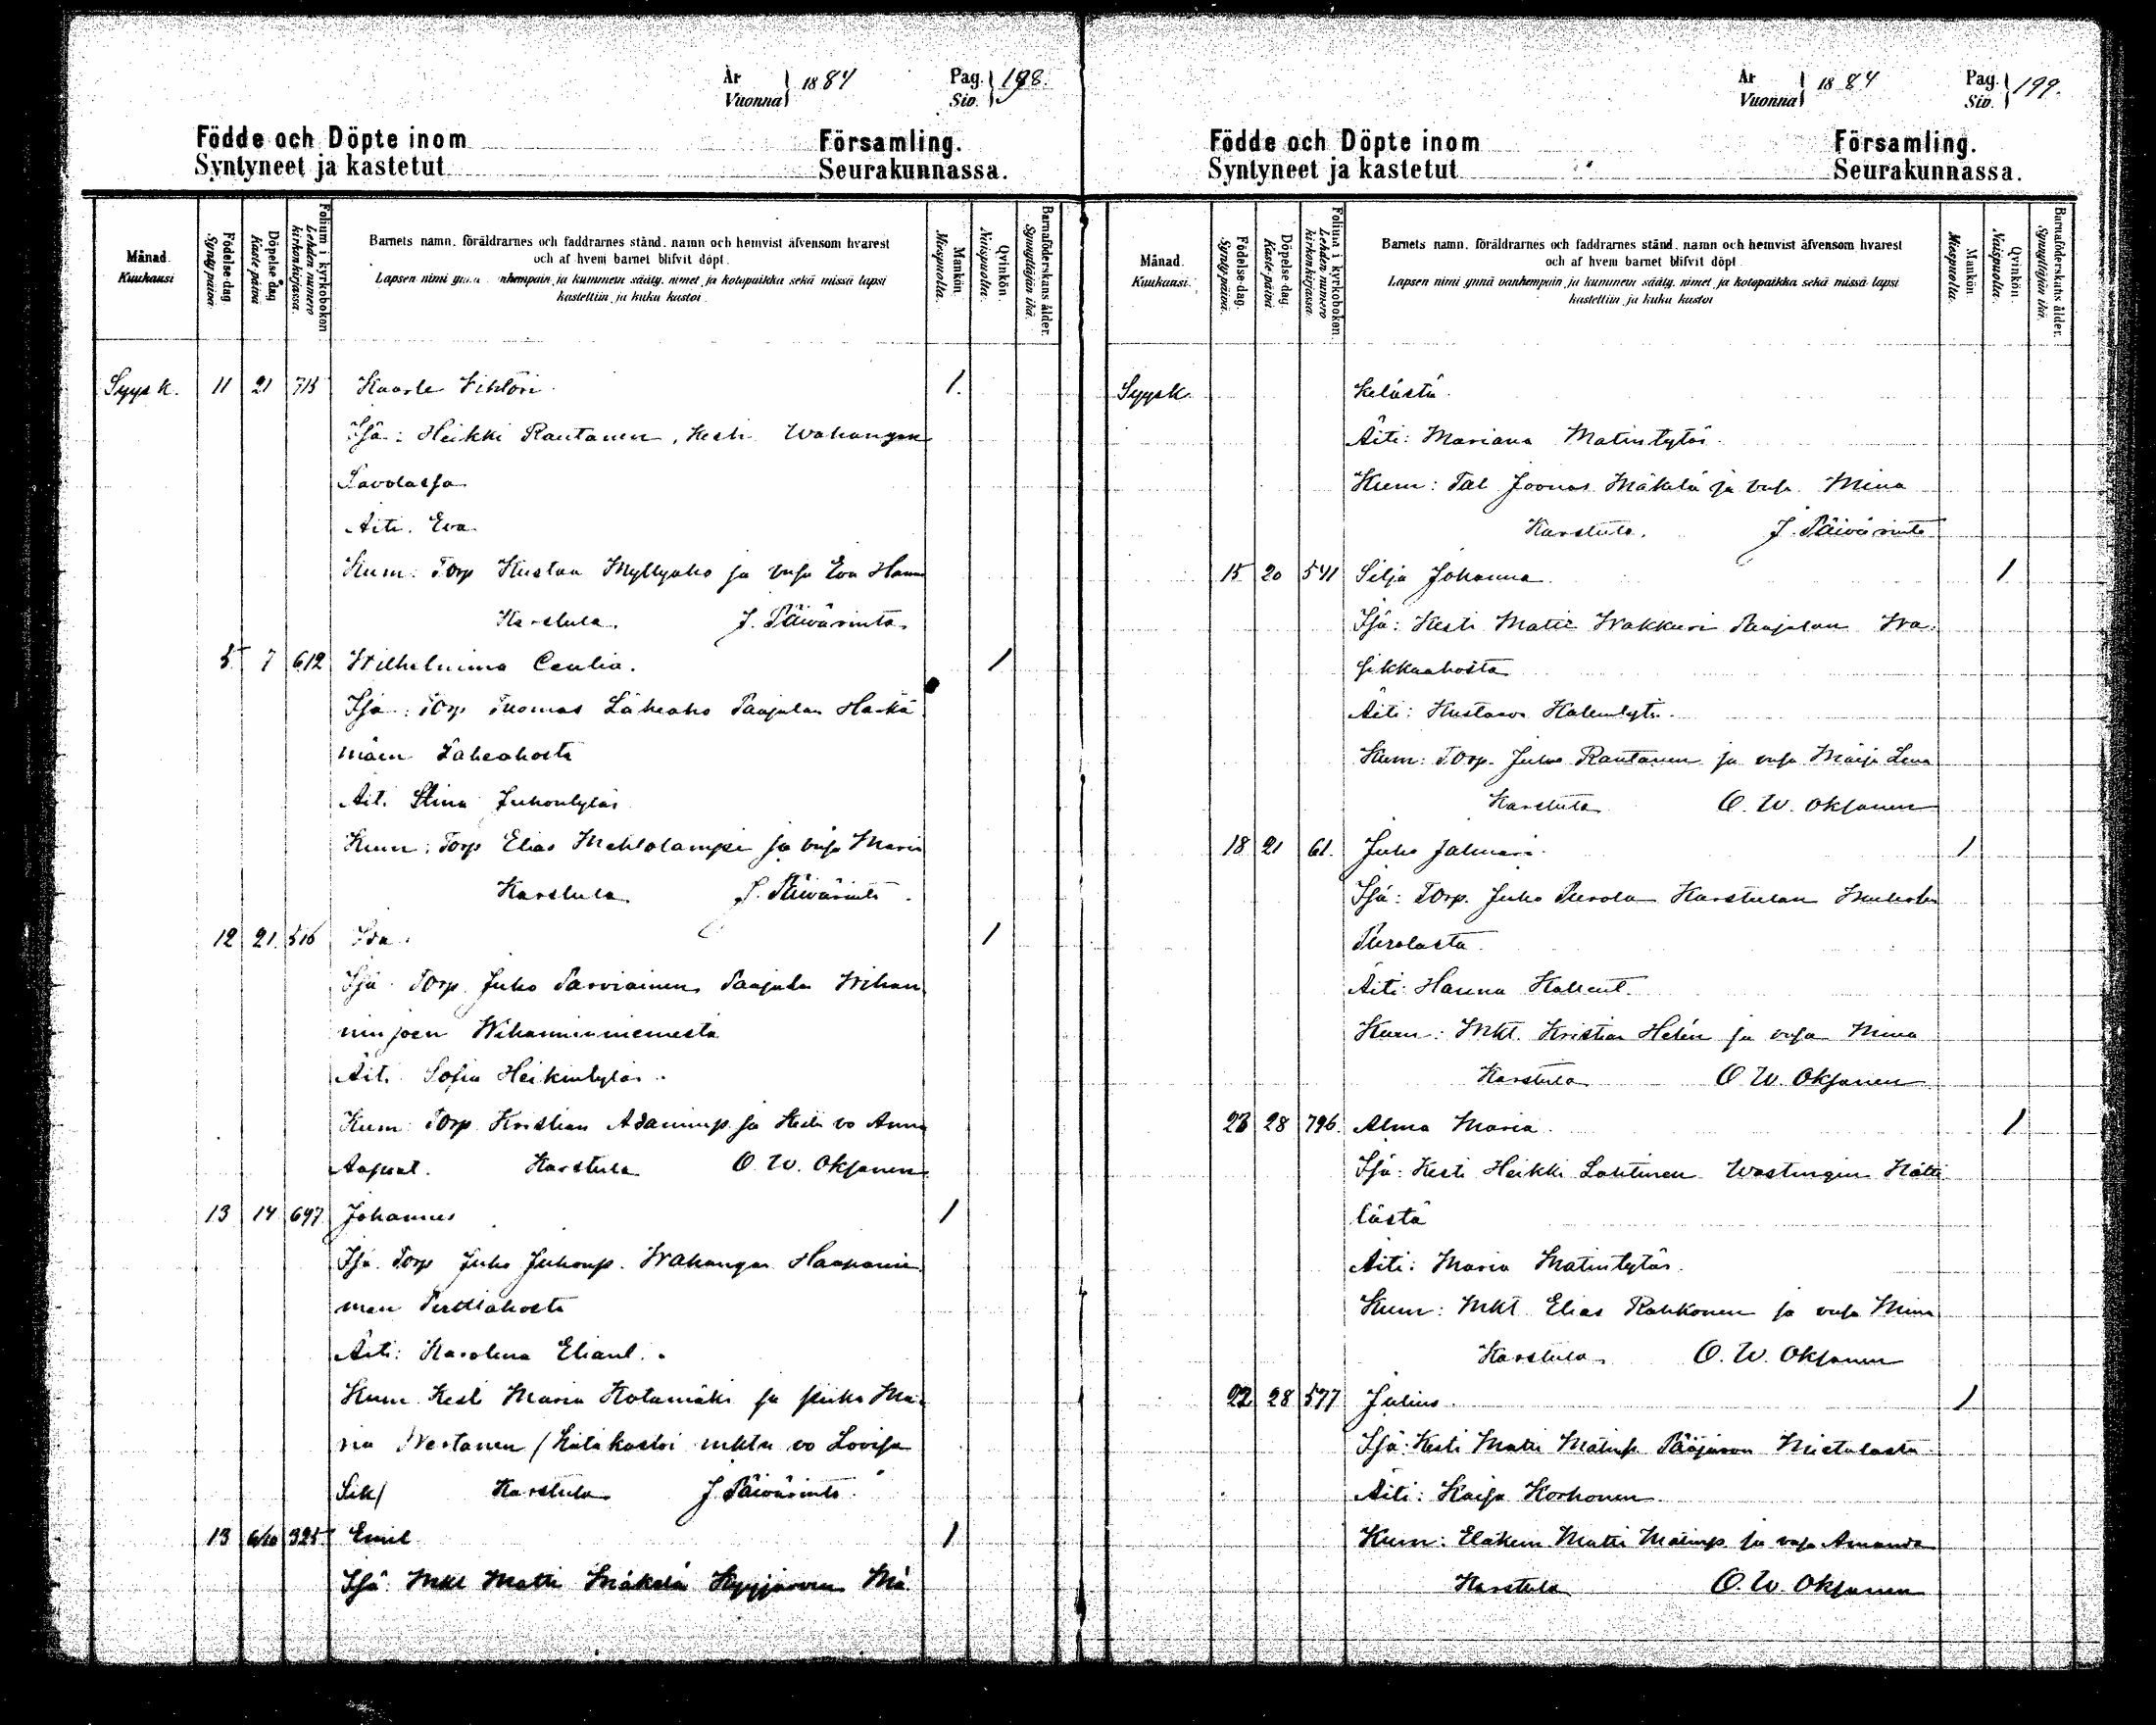 År 1884 Pag. 198.
Vuonna Siv.
Födde och Döpte inom Församling.
Syntyneet ja kastetut Seurakunnassa.
Månad.
Kuukausi
Födelse-dag
Synty-päivä
Döpelse dag
Kaste-päivä
Folium i kyrkoboken
Lehden numero kirkonkirjassa.
Barnets namn, föräldrarnes och faddrarnes stånd, namn och hemvist äfvensom hvarest
och af hvem barnet blifvit döpt
Lapsen nimi vanhempain ja kummein sääty, nimet ja kotopaikka sekä missä lapsi
kastettiin ja kuka kastoi
Mankön.
Miespuolta.
Qvinkön
Naispuolta.
Barnaföderskans ålder.
Synnyttäjän ikä.
Syysk. 11 21 713 Kaarle Vihtori 1.
Isä: Heikki Rautanen, Kesti Wahangan
Savolassa
Äiti. Eva
Kum: Torp Kustaa Myllyaho ja vaso Eva
Karstula. J. Päivärinta
5 7 612 Wilhelmina Ceulia. 1
Isä: Torp Tuomas Läheaho Paajalan Härkä
mäen Läheahosta
Äit. Stina Juhontytär
Kum: Torp Elias Mahlolampi ja vaso Maria
Karstula J. Päivärinta
12 21. 516 Ida. 1
Isä Torp. Juho Parviainen Paajala Wihan
ninjoen Wihanninniemestä
Äiti Sofia Heikintytär
Kum: Torp. Kristian Adaminp. ja Kesti vo Anna
Karstula O. W. Oksanen
13 14 697 Johannes 1
Isä. Torp Juho Juhonp. Wahangan Haapanie
men Perttiahosta
Äiti: Karolina Eliant.
Kum. Kesti Maria Kotamäki ja piika Ma
ria /Hätäkastoi mktu vo Lovisa
Sik/ Karstula J. Päivärinta
13 6/10 325 Emil 1
Isä. Mkt Matti Mäkelä Kyyjärven Mä
År 1884 Pag. 199.
Vuonna Siv.
Födde och Döpte inom Församling.
Syntyneet ja kastetut Seurakunnassa.
Månad.
Kuukausi.
Födelse-dag.
Synty-päivä.
Döpelse-dag.
Kaste-päivä
Folium i kyrkoboken.
Lehden numero kirkonkirjassa.
Barnets namn, föräldrarnes och faddrarnes stånd, namn och hemvist äfvensom hvarest
och af hvem barnet blifvit döpt
Lapsen nimi ynnä vanhempain ja kummein sääty, nimet ja kotopaikka sekä missä lapsi
kastettiin ja kuka kastoi
Mankön
Miespuolta.
Qvinkön.
Naispuolta.
Barnaföderskans ålder.
Synnyttäjän ikä.
Syysk. kelästä
Äiti: Mariana Matintytär.
Kum: Tal Joonas Mäkelä ja vaso Mina
Karstula. J. Päivärinta
15 20 541 Silja Johanna 1
Isä: Kesti Matti Wakkuri Paajalan Wa
sikkaahosta
Äiti: Kustava Kallentyt.
Kum: Torp. Juho Rautanen ja vaso Maija Lena
Karstula O. W. Oksanen
18 21 61. Juho Jalmari 1
Isä: Torp. Juho Purola Karstulan
Purolasta.
Äiti: Hanna Kallent.
Kum: Mkt. Kristian Helén ja vaso Mina
Karstula O. W. Oksanen
23 28 796. Alma Maria. 1
Isä: Kesti Heikki Lahtinen Wastingin Hätti
lästä
Äiti: Maria Matintytär.
Kum: Mkt Elias Rahkonen ja vaso Mina
Karstula O. W. Oksanen
22 28 577 Julius. 1
Isä: Kesti Matti Matinp. Pääjärven
Äiti: Kaisa Korhonen.
Kum: Matti Matinp. ja vaso Amanda
Karstula O. W. Oksanen